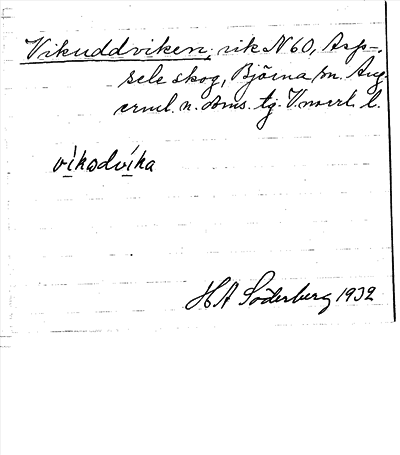 Vikuddviken, vik N 60, Asp-
sele skog, Björna sn. Ång
erml. n. doms. tg. V.norrl. l.
víkɷdvíka
HA Söderberg 1932